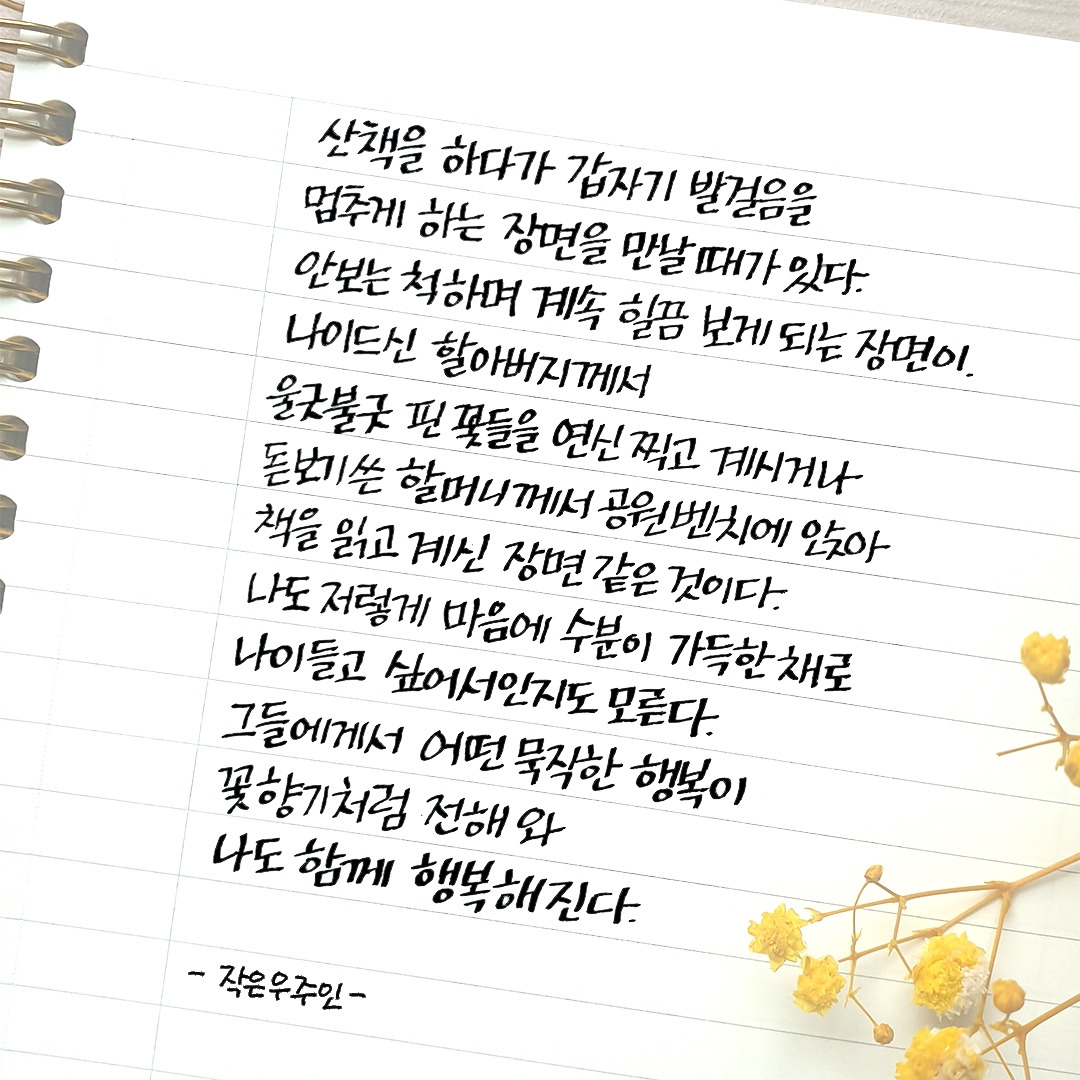 산책을 하다가 갑자기 발걸음을
멈추게 하는 장면을 만날 때가 있다.
안보는 척하며 계속 힐끔 보게 되는 장면이.
나이드신 할아버지께서
울긋불긋 핀 꽃들을 연신 찍고 계시거나
돋보기 쓴 할머니께서 공원벤치에 앉아
책을 읽고 계신 장면 같은 것이다.
나도 저렇게 마음에 수분이 가득한 채로
나이들고 싶어서인지도 모른다.
그들에게서 어떤 묵직한 행복이
꽃향기처럼 전해 와
나도 함께 행복해진다.
- 작은우주인 -